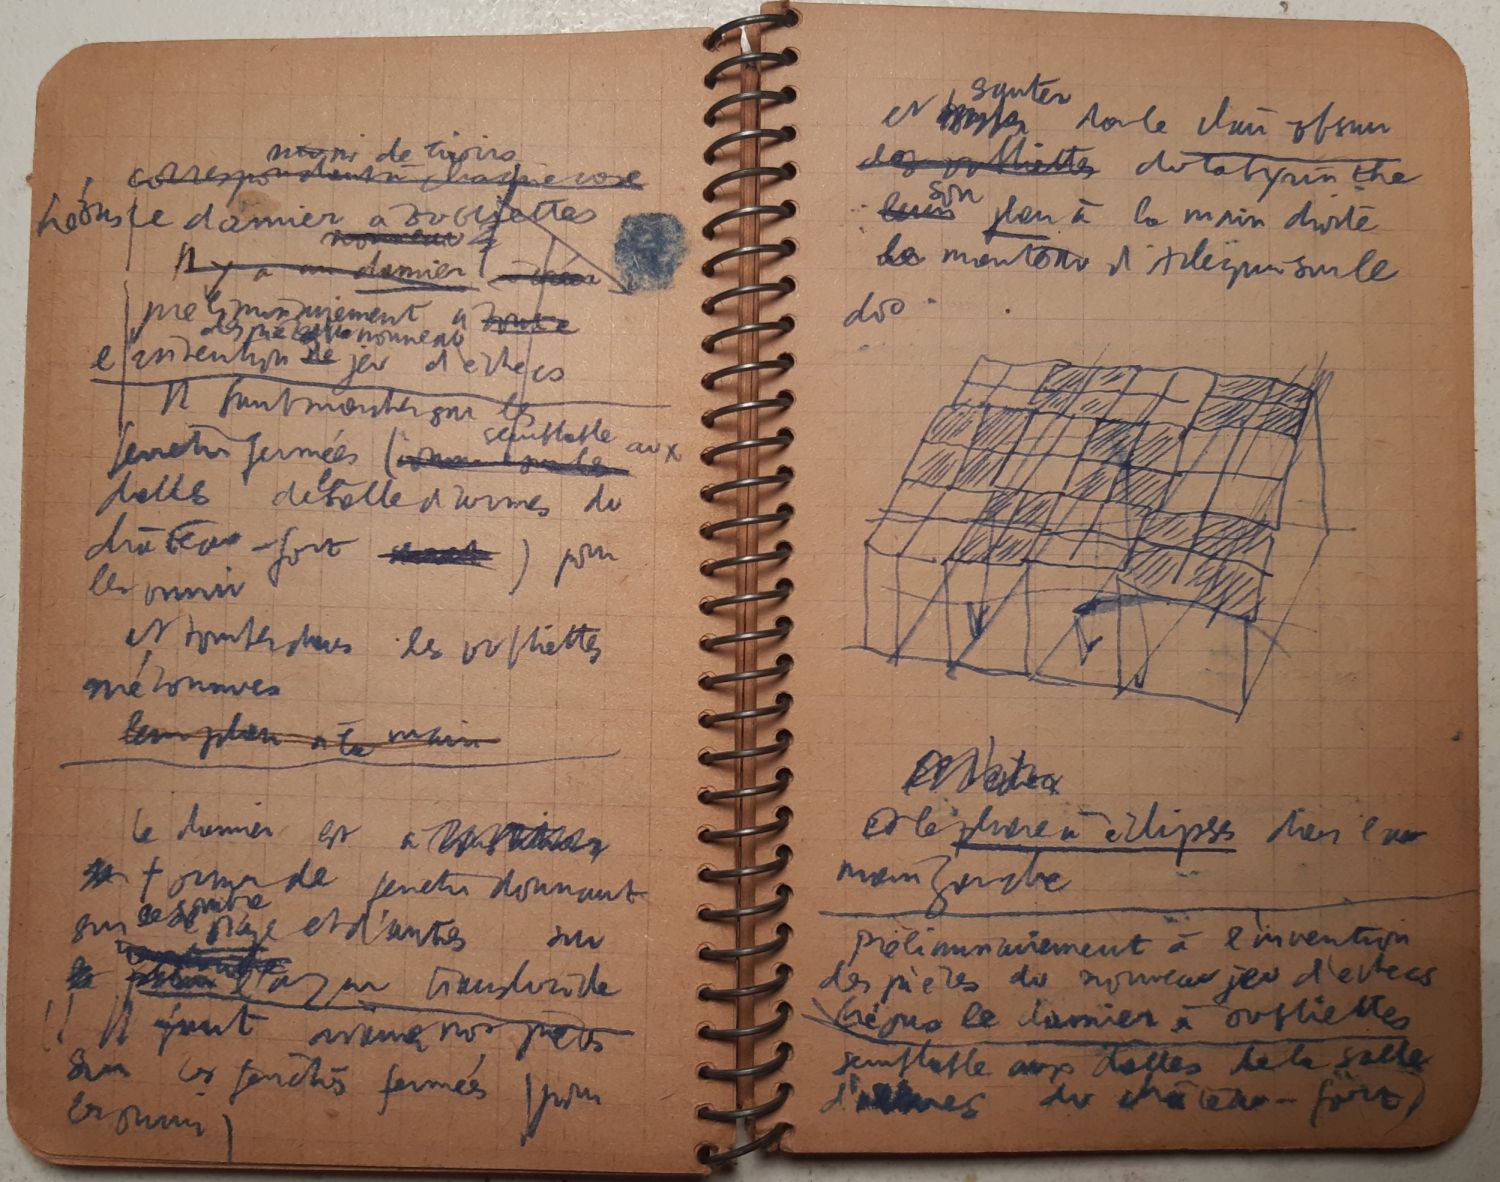 muni de tiroirs
correspondant à chaque case
Créons le damier à oubliettes
nouveau
Il y a un damier
préliminairement à toute
des pièces du nouveau
l'invention de jeu d'échecs
Il faut monter sur les
semblable aux
fenêtres fermées (
dalles de salle d'armes du
château-fort ) pour
les ouvrir
et tomber dans les oubliettes
leur plan à la main
le damier est à
forme de fenêtres donnant
sur le sombre
piège et d'autres sur
l'azur translucide
!! Il faut nos pieds
sur ces fenêtres fermées (pour
les ouvrir)
sauter
et dans le clair obscur
les oubliettes du labyrinthe
son
leur plan à la main droite
le mouton d' sur le
dos
et le phare à éclipses dans la
main gauche
préliminairement à l'invention
des pièces du nouveau jeu d'échecs
Créons le damier à oubliettes
semblable aux dalles de la salle
d'armes du château-fort)